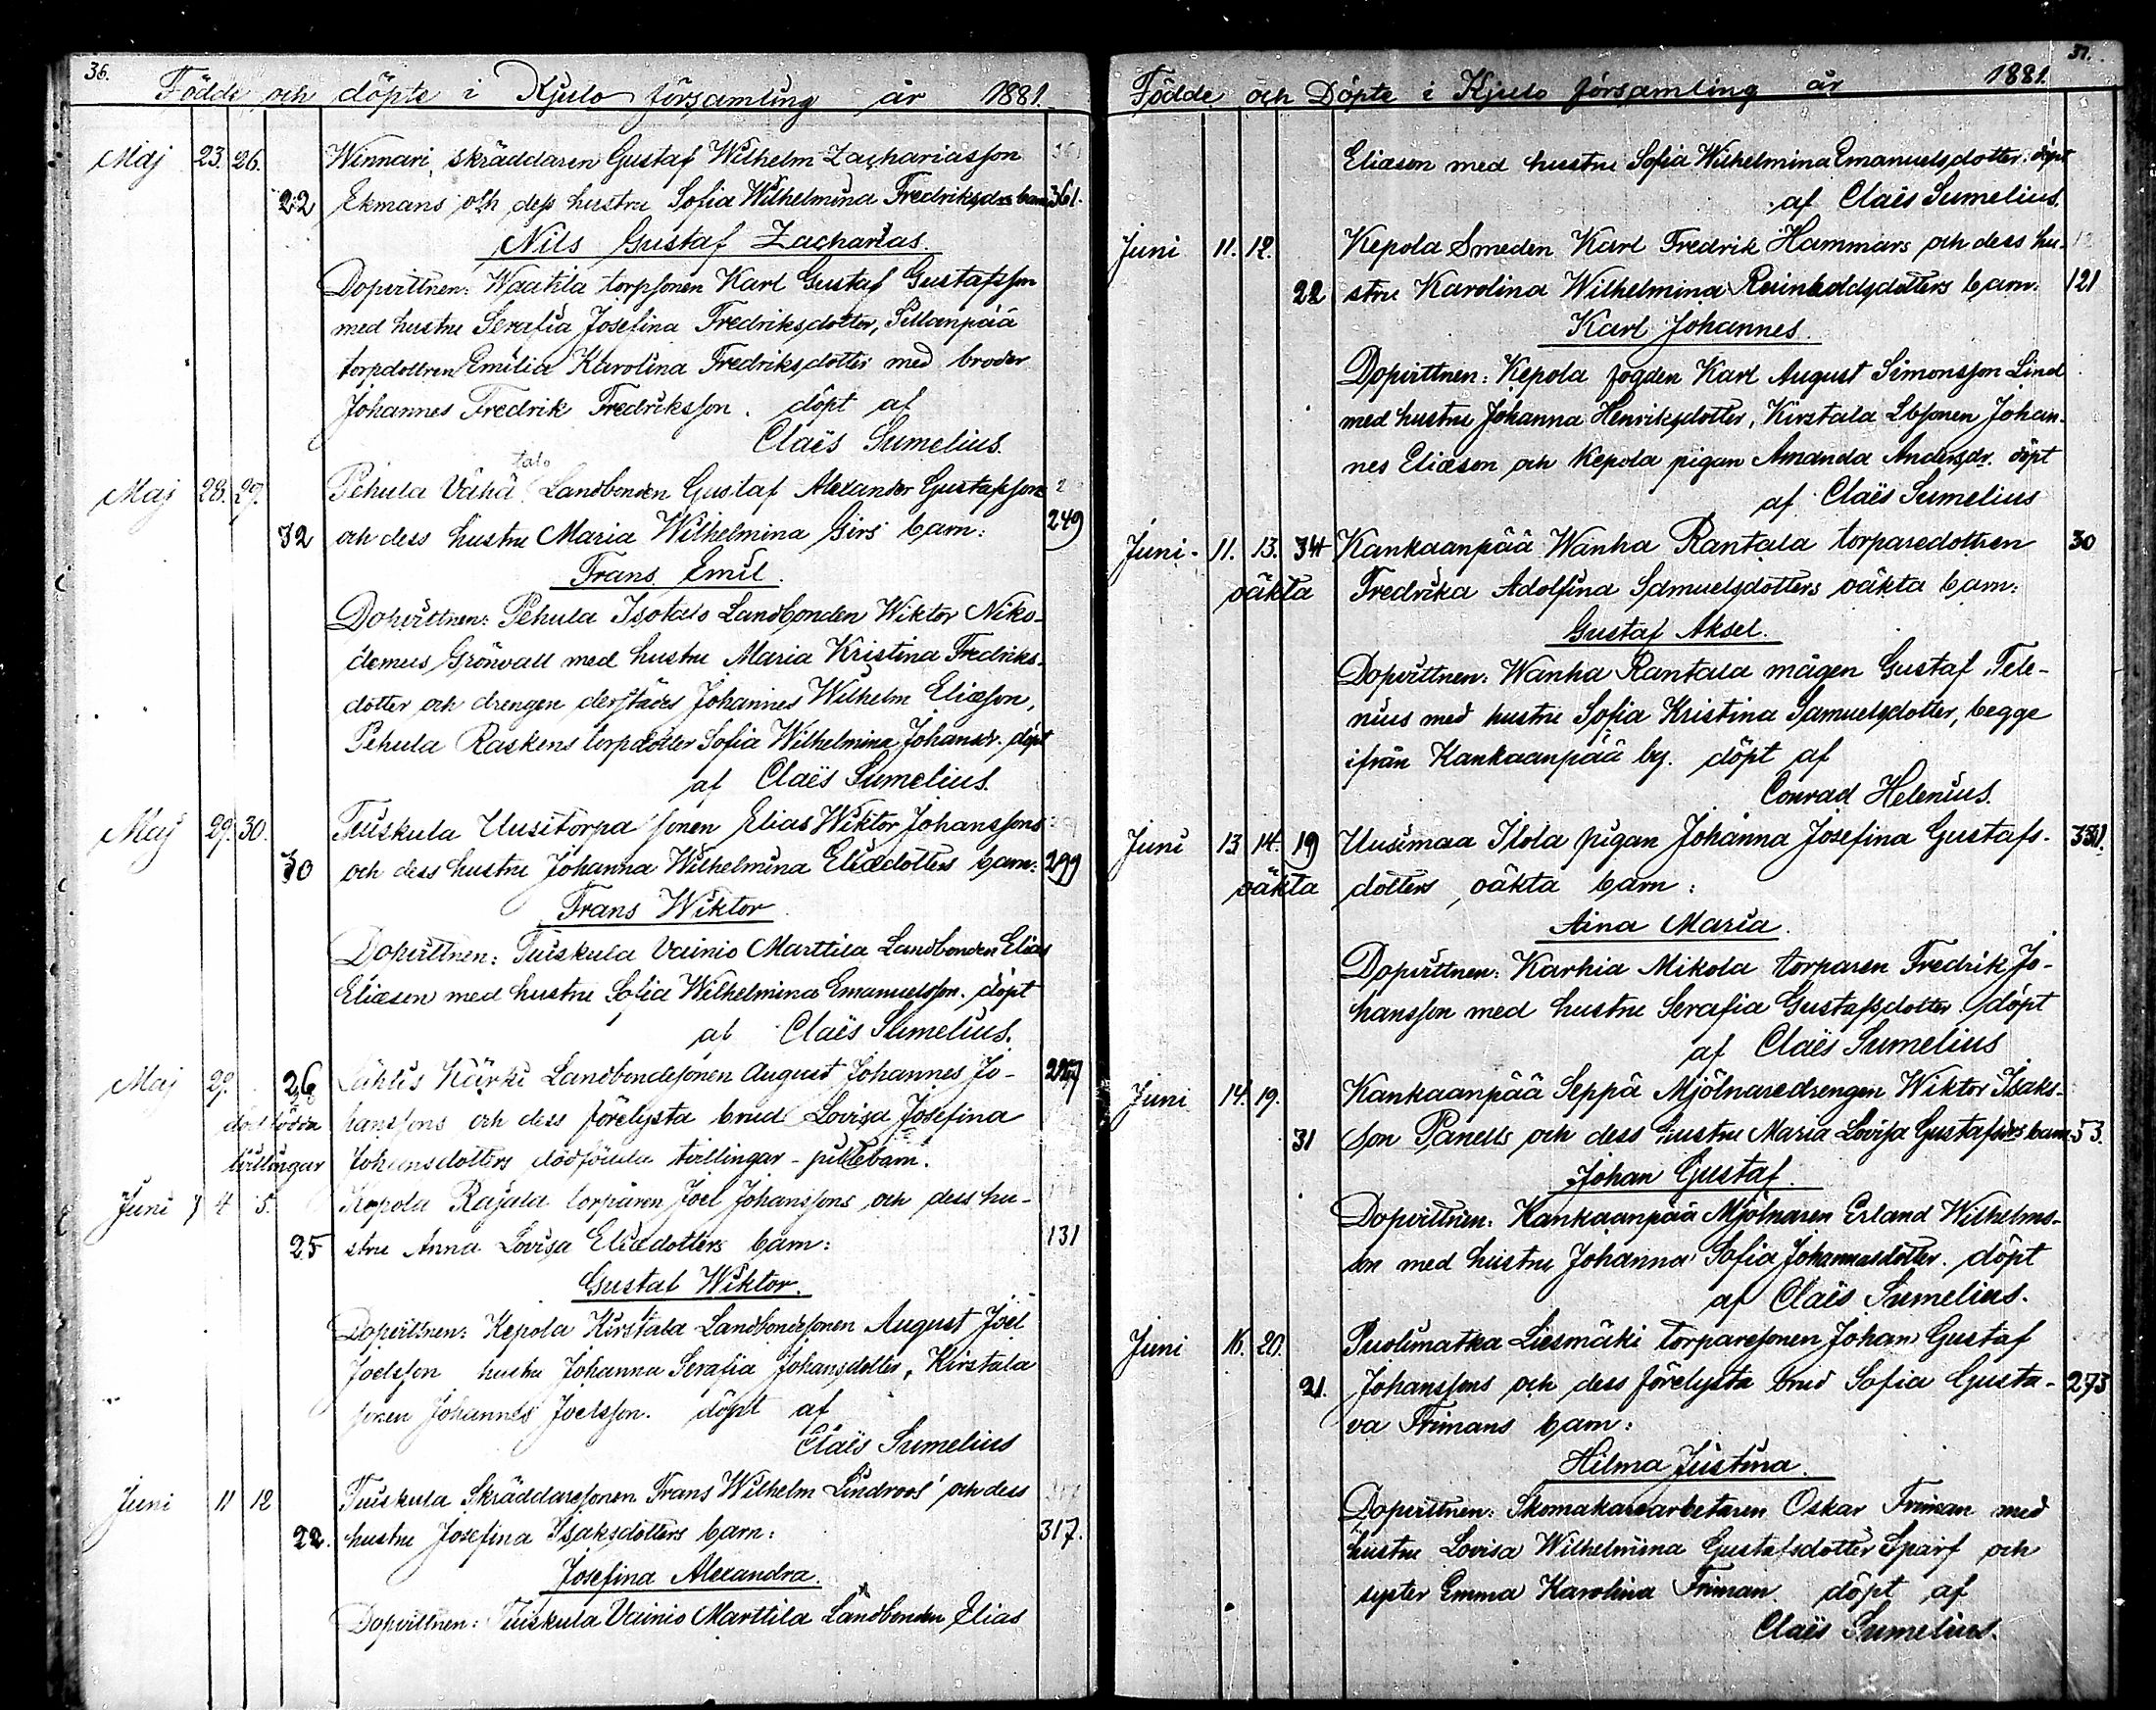 36.
Födde och döpte i Kjulo församling år 1881.
Maj 23. 26. Winnari, skräddaren Gustaf Wilhelm Zachariasson 361
22 Ekmans och dess hustru Sofia Wilhelmina Fredriksdrs barn 361.
Nils Gustaf Zacharias.
Dopvittnen: Waakla torpsonen Karl Gustaf Gustafsson
med hustru Serafia Josefina Fredriksdotter, Sillanpää
torpdottren Emilia Karolina Fredriksdotter med broder
Johannes Fredrik Fredriksson. döpt af
Claës Sumelius.
talo
Maj 28. 29. Pehula Vähä Landbonden Gustaf Alexander Gustafsson 2
32 och dess hustru Maria Wilhelmina Girs barn: 249
Frans Emil.
Dopvittnen: Pehula Isotalo Landbonden Wiktor Niko-
demus Grönvall med hustru Maria Kristina Fredriks-
dotter och drengen derstädes Johannes Wilhelm Eliasson,
Pehula Raskens torpdotter Sofia Wilhelmina Johansdr. döpt
af Claës Sumelius.
Maj 29. 30. Tuiskula Uusitorpa sonen Elias Wiktor Johanssons
30 och dess hustru Johanna Wilhelmina Eliædotters barn: 299
Frans Wiktor
Dopvittnen: Tuiskula Vainio Marttila Landbonden Elias
Eliæsen med hustru Sofia Wilhelmina Emanuelsson. döpt
af Claës Sumelius.
Maj 29. 26 Lähtis Härki Landbondesonen August Johannes Jo- 227
dödfödda hanssons och dess förelysta brud Lovisa Josefina
tvillingar Johansdotters dödfödda tvillingar - piltebarn.
Juni 4 5. Kepola Rajala torparen Joel Johanssons och dess hu-
25 stru Anna Lovisa Eliædotters barn: 131
Gustaf Wiktor.
Dopvittnen: Kepola Kirstala Landbondesonen August Joel
Joelsson hustru Johanna Serafia Johansdotter, Kirstala
sonen Johannes Joelsson. döpt af
Claës Sumelius
Juni 11 12 Tuiskula Skräddaresonen Frans Wilhelm Lindroos' och dess 317
22. hustru Josefina Isaksdotters barn: 317.
Josefina Alexandra.
Dopvittnen: Tuiskula Vainio Marttila Landbonden Elias
37.
Födde och Döpte i Kjulo församling år 1881.
Eliæson med hustru Sofia Wilhelmina Emanuelsdotter. döpt
af Claës Sumelius.
Juni 11. 12. Kepola Smeden Karl Fredrik Hammars och dess hu-
22 stru Karolina Wilhelmina Reinholdsdotters barn. 121
Karl Johannes.
Dopvittnen: Kepola fogden Karl August Simonsson Lind
med hustru Johanna Henriksdotter, Kirstala Lbsonen Johan-
nes Eliæson och Kepola pigan Amanda Andersdr. döpt
af Claës Sumelius
Juni. 11. 13. 34 Kankaanpää Wanha Rantala torparedottren 30
oäkta Fredrika Adolfina Samuelsdotters oäkta barn:
Gustaf Aksel.
Dopvittnen: Wanha Rantala mågen Gustaf Tele-
nius med hustru Sofia Kristina Samuelsdotter, begge
ifrån Kankaanpää by. döpt af
Conrad Helenius.
Juni 13 14. 19 Uusimaa Ilola pigan Johanna Josefina Gustafs- 331.
oäkta dotters, oäkta barn:
Aina Maria.
Dopvittnen: Karhia Mikola torparen Fredrik Jo-
hansson med hustru Serafia Gustafsdotter döpt
af Claës Sumelius
Juni 14. 19. Kankaanpää Seppä Mjölnaredrengen Wiktor Isaks-
31 son Panells och dess hustru Maria Lovisa Gustafsdrs barn 53.
Johan Gustaf.
Dopvittnen: Kankaanpää Mjölnaren Erland Wilhelms-
son med hustru Johanna Sofia Johannesdotter. döpt
af Claës Sumelius.
Juni 16. 20. Puolimatka Liesmäki torparesonen Johan Gustaf
21. Johanssons och dess förelysta brud Sofia Gusta- 273
va Frimans barn:
Hilma Justina.
Dopvittnen: Skomakarearbetaren Oskar Friman med
hustru Lovisa Wilhelmina Gustafsdotter Sparf och
syster Emma Karolina Friman. döpt af
Claës Sumelius.